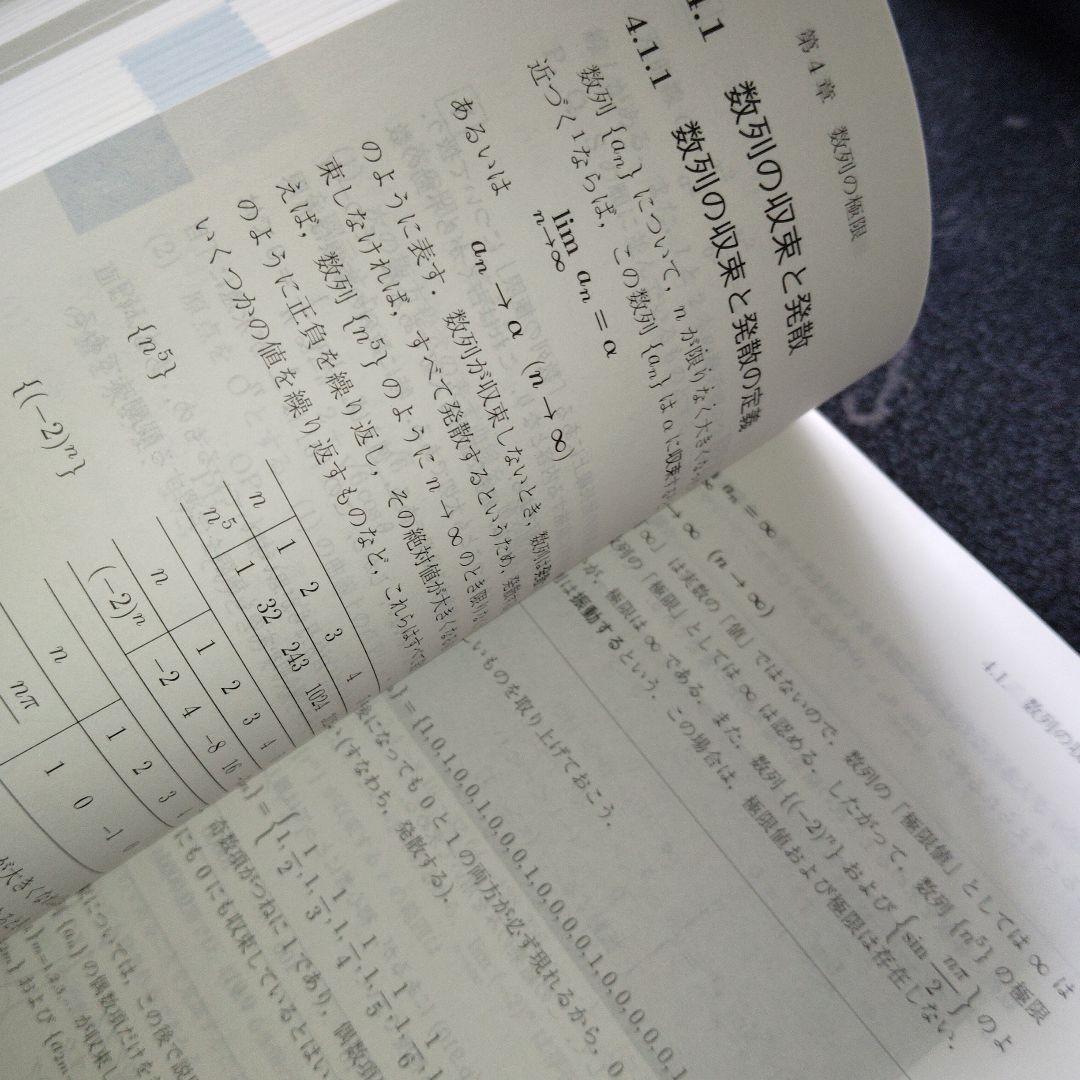 第4章 数列の極限
4.1 数列の収束と発散
4.1.1 数列の収束と発散の定義
数列 {aₙ} について, n が限りなく大きくな
近づく¹ならば, この数列 {aₙ} は α に収束す
lim aₙ = α
n→∞
あるいは
aₙ → α (n → ∞)
のように表す. 数列が収束しないとき, 数列は発
束しなければ, すべて発散するというため, 発散
えば, 数列 {n⁵} のように n → ∞ のとき限り
のように正負を繰り返し, その絶対値が大きくな
いくつかの値を繰り返すものなど, これらはすべ
{n⁵}
n 1 2 3 4
n⁵ 1 32 243 1024
{(-2)ⁿ}
n 1 2 3 4
(-2)ⁿ -2 4 -8 16
n 1 2 3
nπ 1 0 -1
が大きくな
4.1. 数列の収
aₙ = ∞
→ ∞ (n → ∞)
∞」は実数の「値」ではないので, 数列の「極限値」としては ∞ は
数列の「極限」としては ∞ は認める. したがって, 数列 {n⁵} の極限
が, 極限は ∞ である. また, 数列 {(-2)ⁿ} および {sin nπ/2} のよ
は振動するという. この場合は, 極限値および極限は存在しない.
いものを取り上げておこう.
} = {1, 0, 1, 0, 0, 1, 0, 0, 0, 1, 0, 0, 0, 0, 1, 0, 0, 0, 0, 0, 1,
後になっても 0 と 1 の両方が必ず現れるから, 0
い (すなわち, 発散する).
} = {1, 1/2, 1, 1/3, 1, 1/4, 1, 1/5, 1, 1/6, 1,
奇数項がつねに 1 であり, 偶数項
にも 0 にも収束しているとはい
については, この後で説
{aₙ} の偶数項だけを
が収束し
および